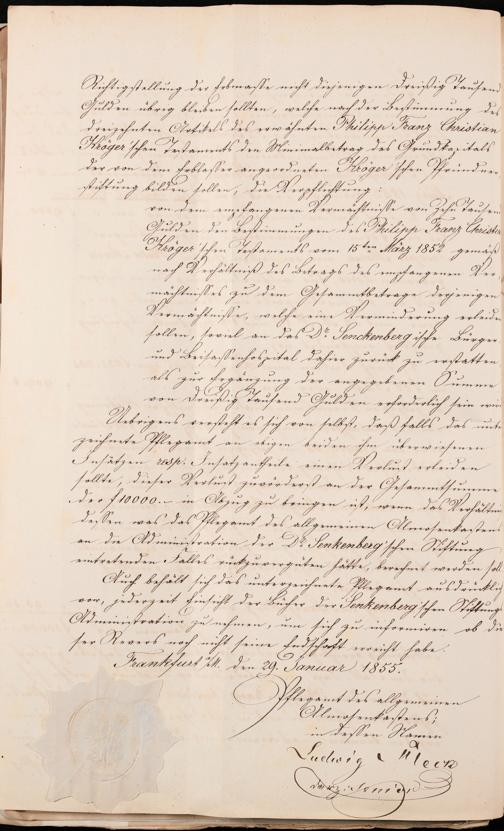 Richtigstellung der Erbmasse nicht diejenigen Dreißig Tausend
Gulden übrig bleiben sollten, welche nach der Bestimmung des
dreizehnten Artikels des erwähnten Philipp Franz Christian
Kröger'schen Testaments den Minimalbetrag des Grundkapitals
der von dem Erblasser angeordneten Kröger'schen Pfründner
stiftung bilden sollen, die Verpflichtung:
von dem empfangenen Vermächtnisse von Zehn Tausend
Gulden den Bestimmungen des Philipp Franz Christian
Kröger'schen Testaments vom 15ten März 1852 gemäß
nach Verhältniß des Betrags des empfangenen Ver
mächtnisses zu dem Gesammtbetrage derjenigen
Vermächtnisse, welche eine Verminderung erleiden
sollen, soviel an das Dr. Senckenberg'ische Bürger
und Beisassenhospital daher zurück zu erstatten
als zur Ergänzung der angegebenen Summe
von Dreißig Tausend Gulden erforderlich sein wird
Uebrigens versteht es sich von selbst, daß falls das unter
zeichnete Pflegamt an obigen beiden ihm überwiesenen
Insätzen resp. Insatzantheile einen Verlust erleiden
sollte, dieser Verlust zuvörderst an der Gesammtsumme
der f 10000.— in Abzug zu bringen ist, wenn das Verhältniß
dessen was das Pflegamt des allgemeinen Almosenkastens
an die Administration der Dr. Senkenberg'schen Stiftung
eintretenden Falles rückzuvergüten hätte, berechnet werden soll
Auch behält sich das unterzeichnete Pflegamt ausdrücklich
vor, jederzeit Einsicht der Bücher der Senkenberg'schen Stiftungs
Administration zu nehmen, um sich zu informiren ob die
ser Revers noch nicht seine Endschaft erreicht habe.
Frankfurt a/M. den 29. Januar 1855.
Pflegamt des allgemeinen
Almosenkastens;
in dessen Namen
Ludwig